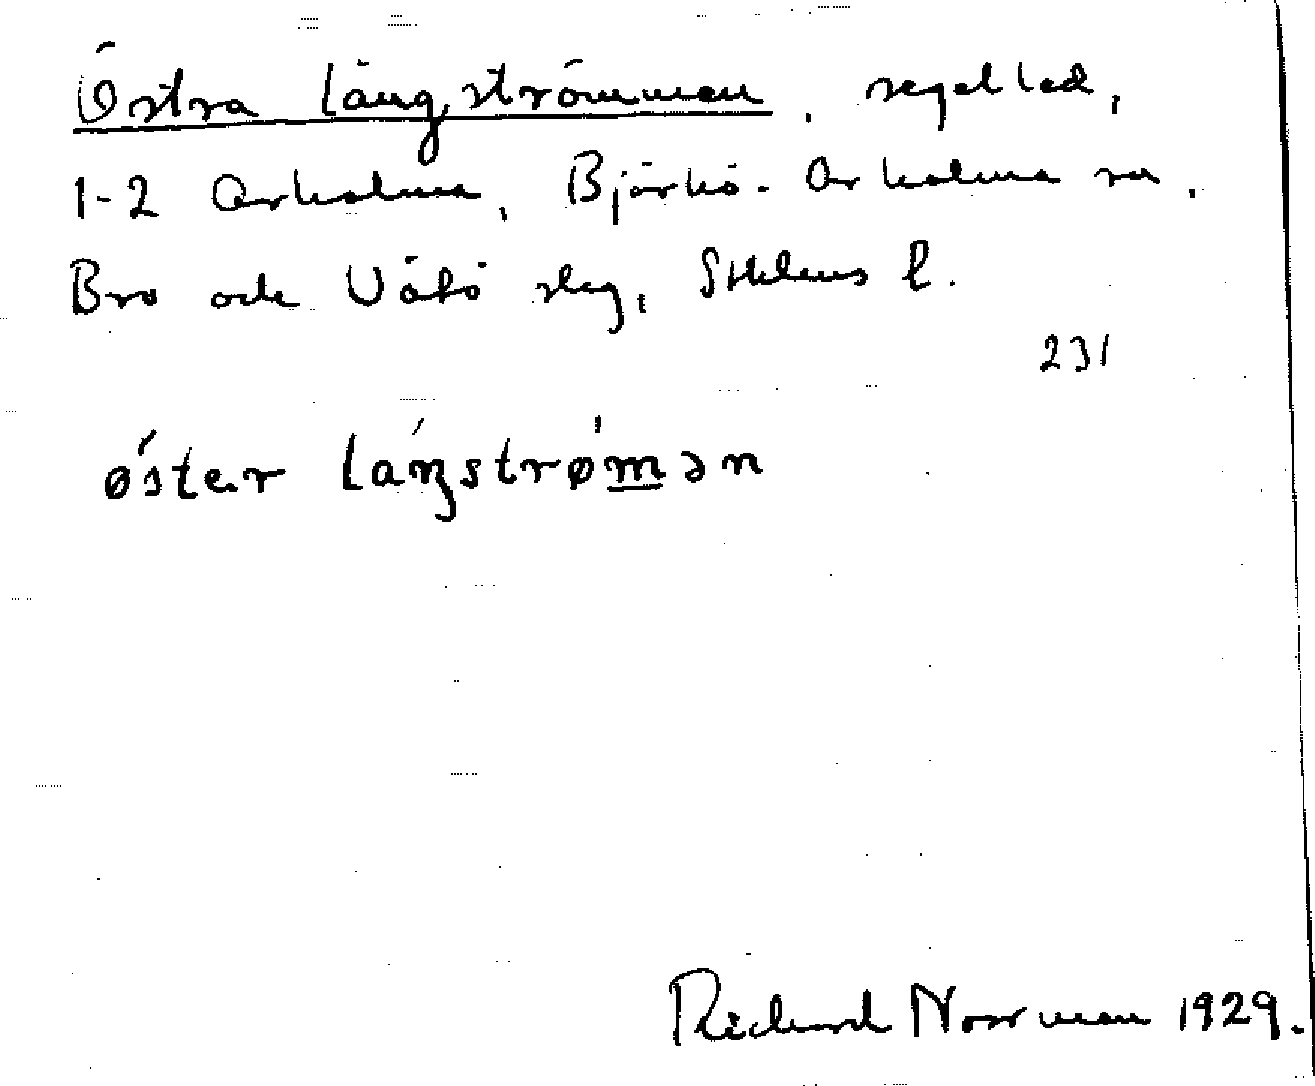 Östra Långströmmen, segelled,
1-2 Arholma, Björkö-Arholma sn,
Bro och Vätö skg, Sthlms l.
231
ǿster laŋstrømən
Richard Norrman 1929.